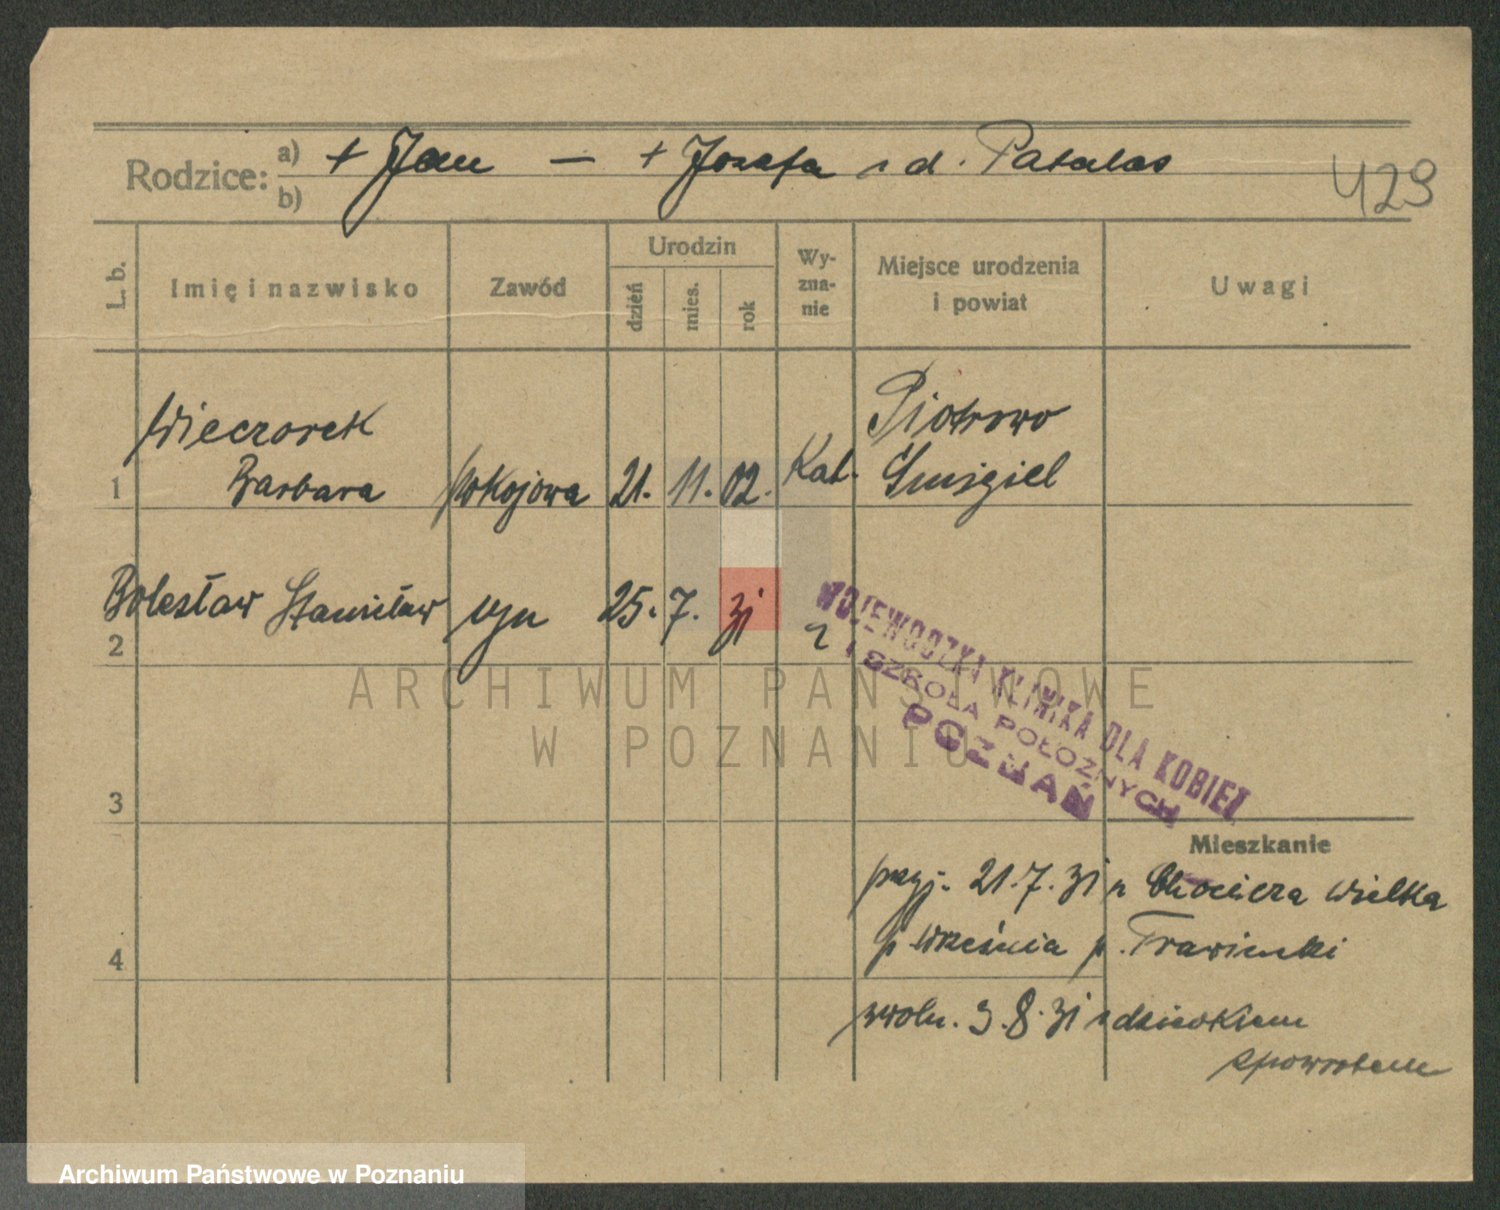 Rodzice: a) + Jan — + Józefa z d. Patalas
b)
429
L. b.
Imię i nazwisko
Zawód
Urodzin
dzień
mies.
rok
Wy-
zna-
nie
Miejsce urodzenia
i powiat
Uwagi
Wieczorek
Barbara
1
pokojowa
21. 11. 02.
Kat.
Piotrowo
Śmigiel
Bolesław Stanisław syn 25. 7. 31
2
WOJEWÓDZKA KLINIKA DLA KOBIET
I SZKOŁA POŁOŻNYCH
POZNAŃ
ARCHIWUM PAŃSTWOWE
W POZNANIU
3
Mieszkanie
przyj. 21.7.31 z Chociczа Wielka
p Września p. Trawiński
4
zwoln. 3.8.31 z dzieckiem
spowrotem
Archiwum Państwowe w Poznaniu